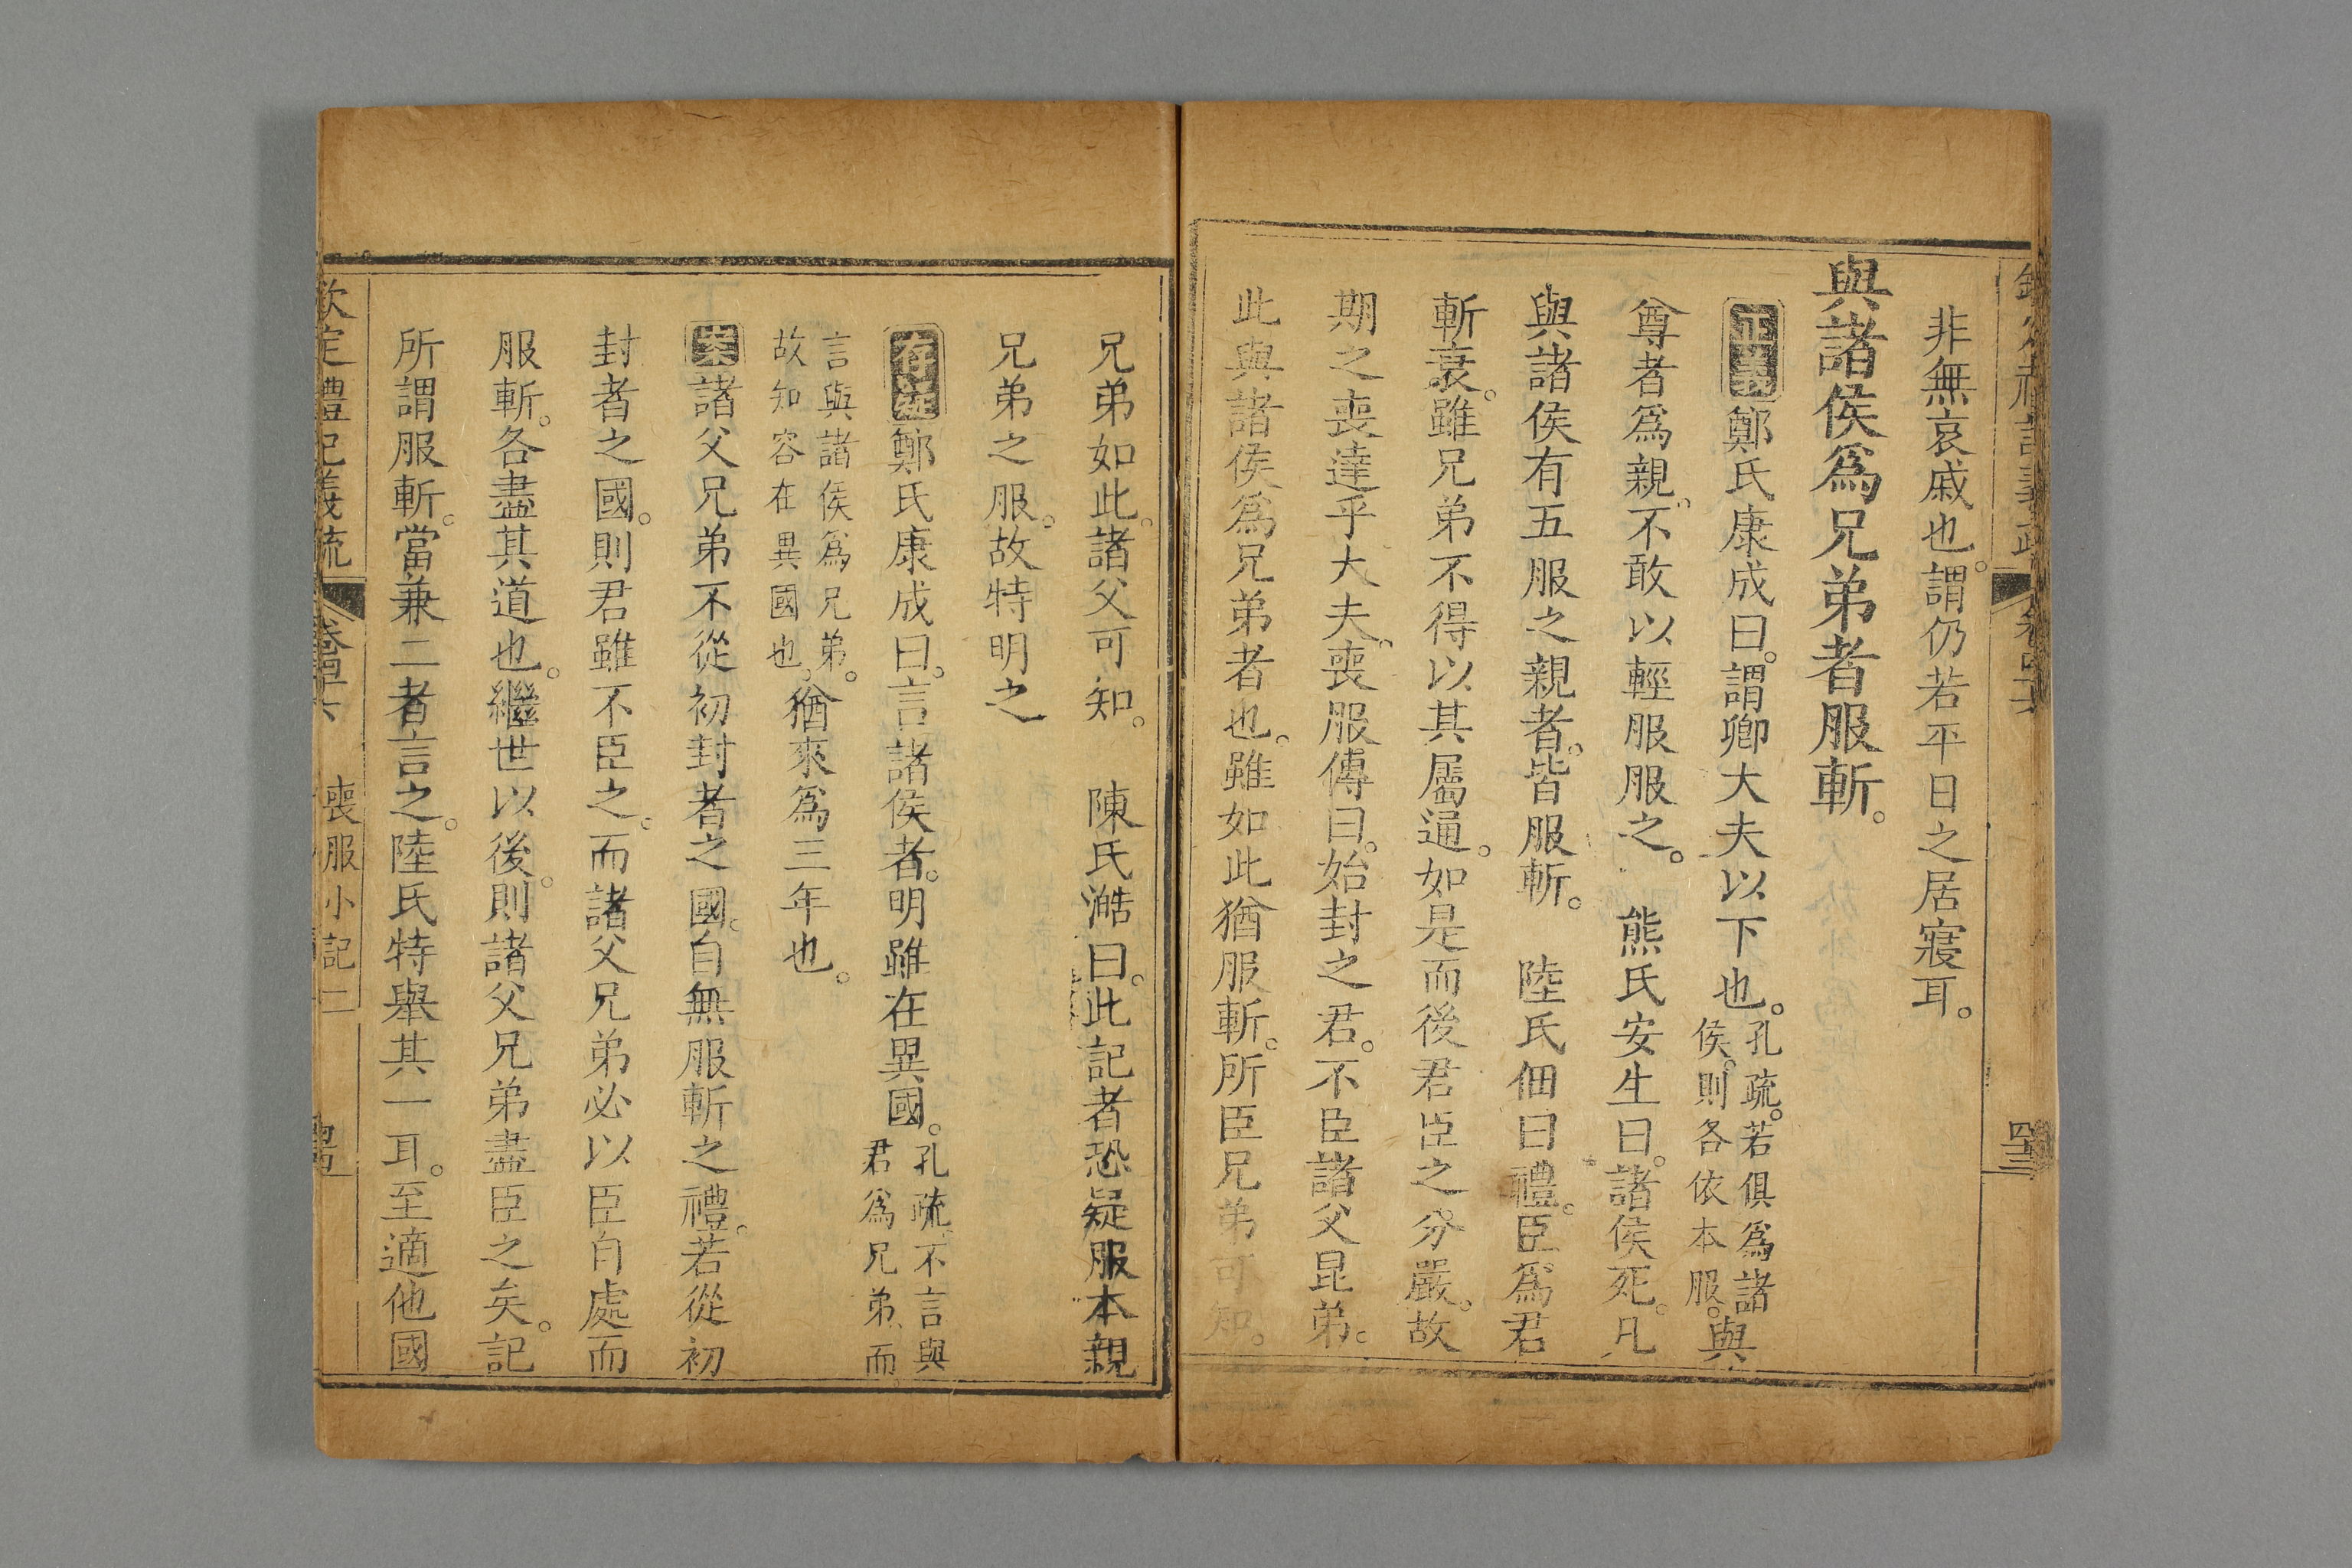 非無哀戚也。謂仍若平日之居寢耳。
與諸侯爲兄弟者服斬。
正義鄭氏康成曰。謂卿大夫以下也。孔疏。若俱爲諸
侯。則各依本服。與
尊者爲親。不敢以輕服服之。 熊氏安生曰。諸侯死。凡
與諸侯有五服之親者。皆服斬。 陸氏佃曰禮。臣爲君
斬衰。雖兄弟不得以其屬通。如是而後君臣之分嚴。故
期之喪達乎大夫。喪服傳曰。始封之君。不臣諸父昆弟。
此與諸侯爲兄弟者也。雖如此猶服斬。所臣兄弟可知。
兄弟如此。諸父可知。 陳氏澔曰。此記者恐疑服本親
兄弟之服。故特明之
存疑鄭氏康成曰。言諸侯者。明雖在異國。孔疏、不言與
君爲兄弟、而
言與諸侯爲兄弟。
故知容在異國也、猶來爲三年也。
案諸父兄弟不從初封者之國。自無服斬之禮。若從初
封者之國。則君雖不臣之。而諸父兄弟必以臣自處而
服斬。各盡其道也。繼世以後。則諸父兄弟盡臣之矣。記
所謂服斬。當兼二者言之。陸氏特舉其一耳。至適他國
欽定禮記義疏 卷四十六 喪服小記二